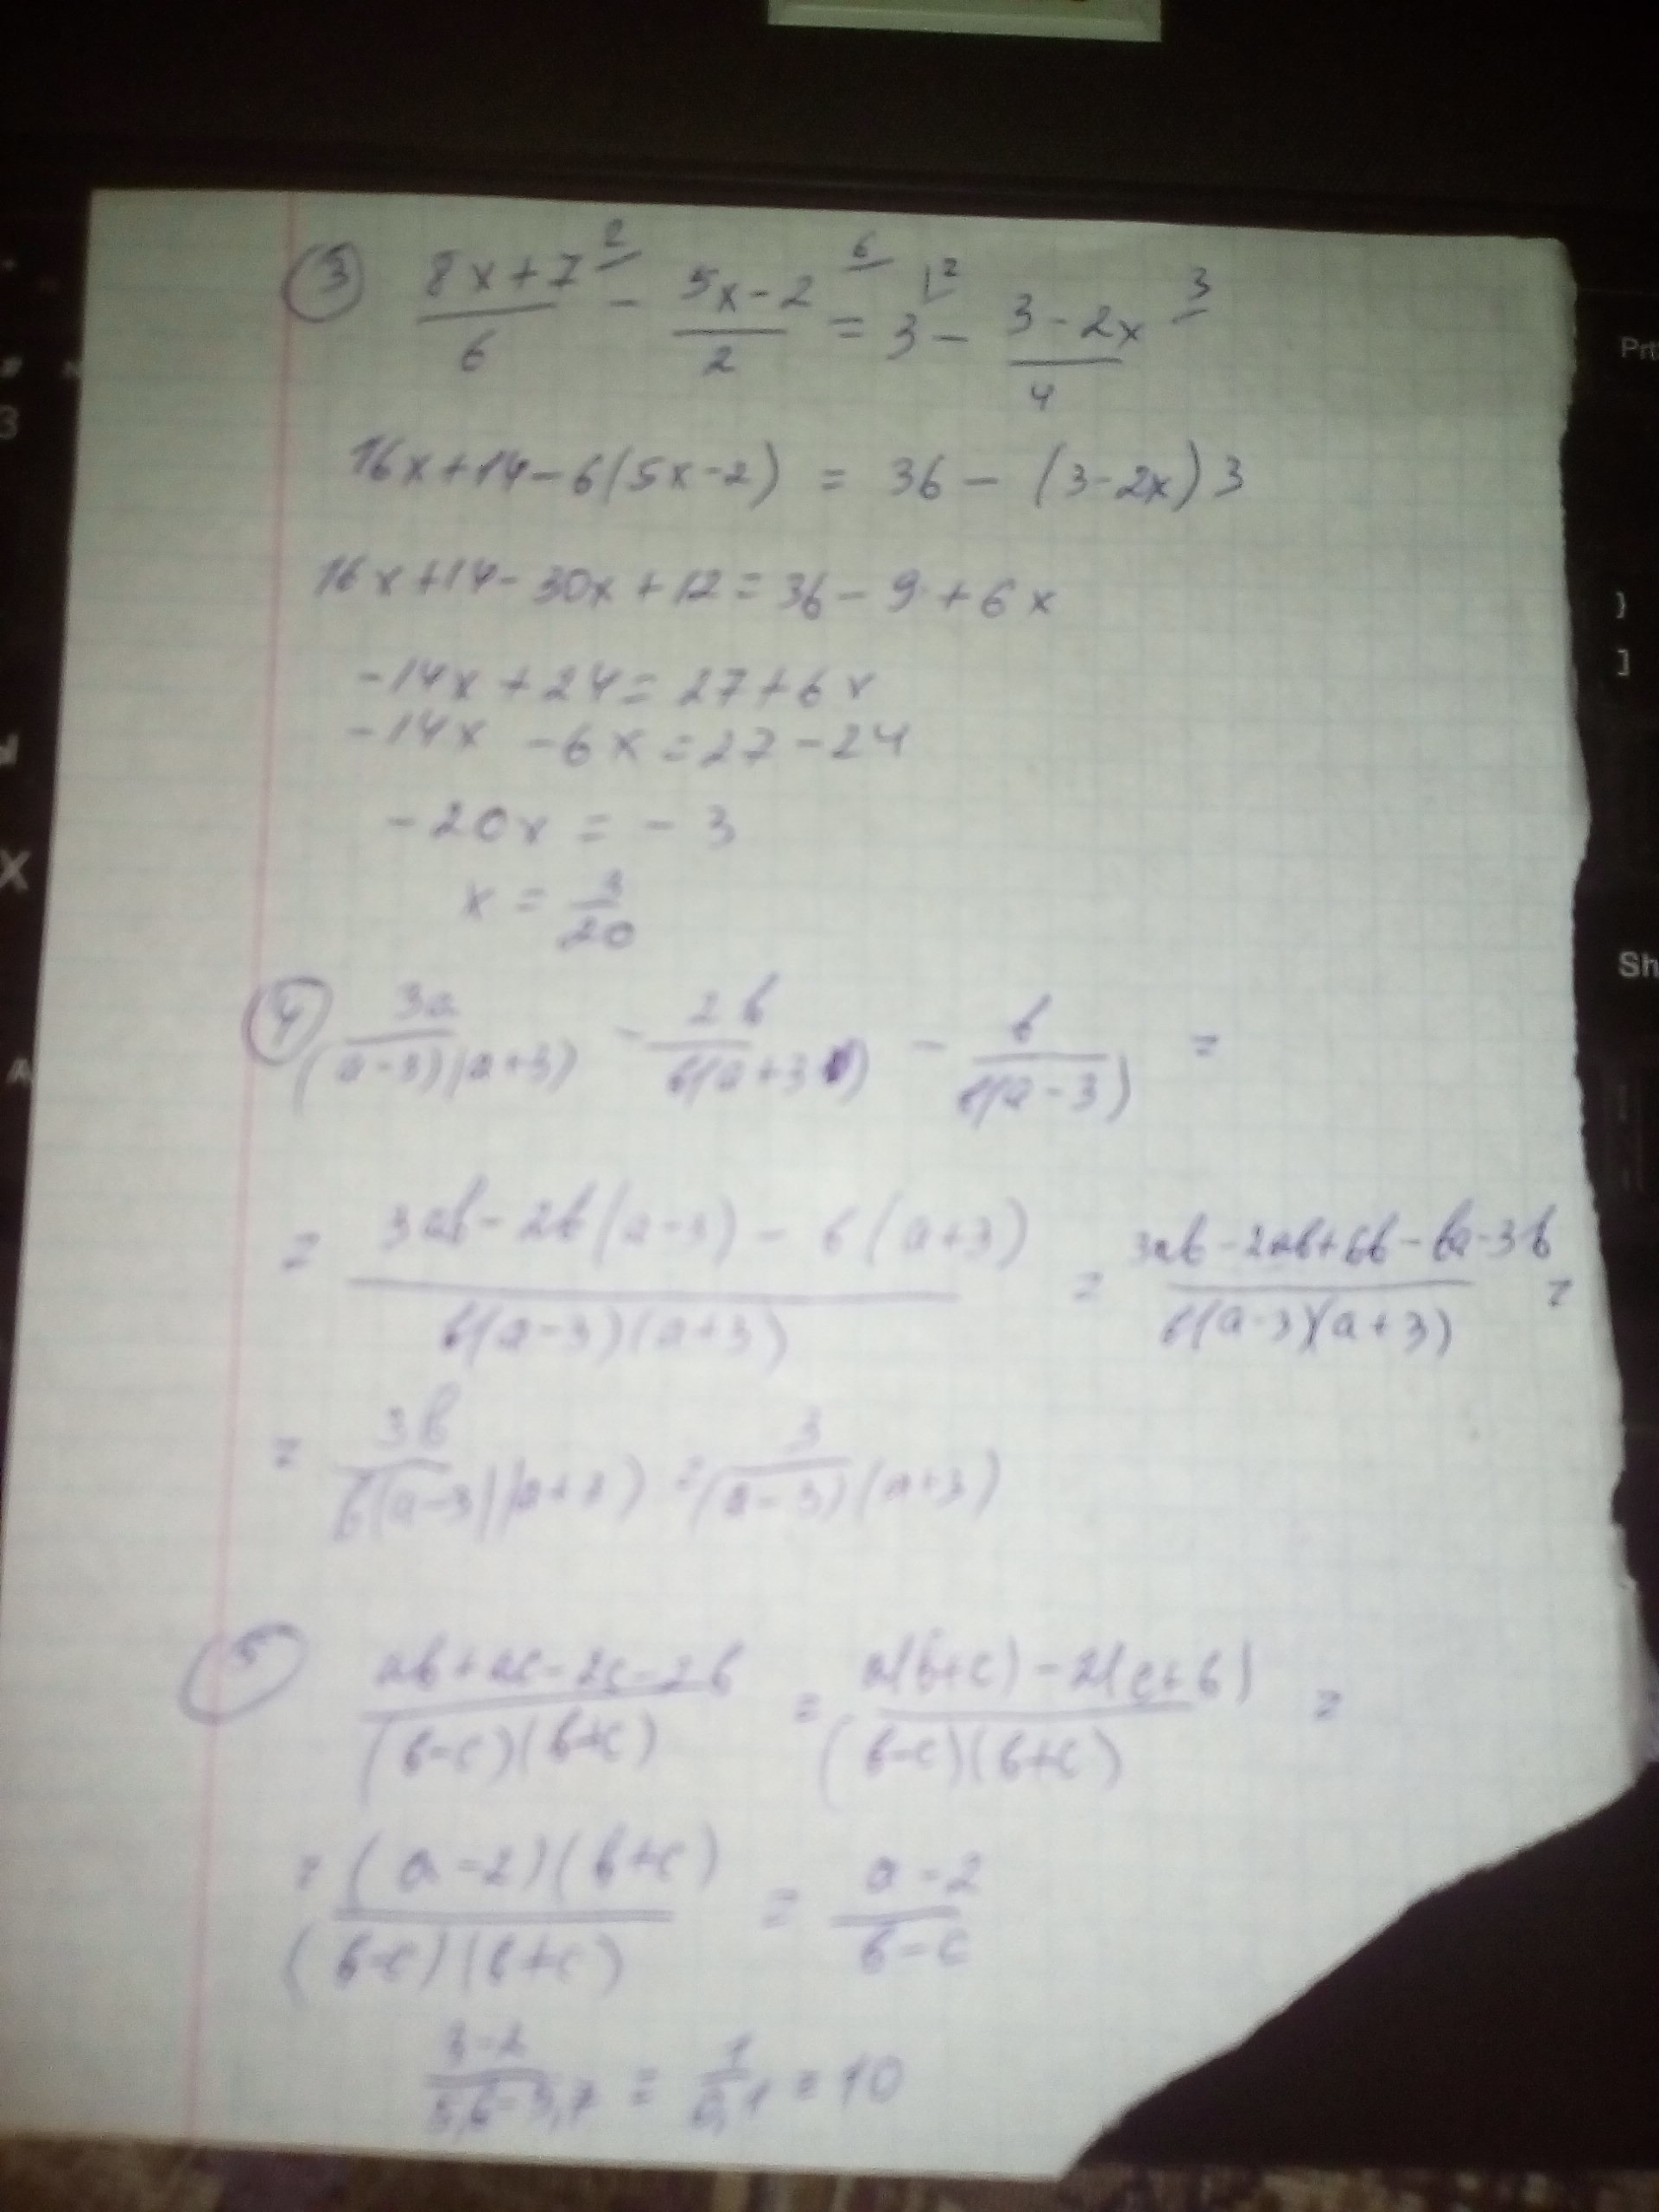 ③ (8x+7)/6 ² - (5x-2)/2 ⁶ = 3 ¹² - (3-2x)/4 ³
16x+14-6(5x-2) = 36-(3-2x)3
16x+14-30x+12=36-9+6x
-14x+24=27+6x
-14x -6x=27-24
-20x = -3
x = 3/20
④ 3a/((a-3)(a+3)) - 2b/(b(a+3)) - b/(b(a-3)) =
= (3ab-2b(a-3)-b(a+3))/(b(a-3)(a+3)) = (3ab-2ab+6b-ba-3b)/(b(a-3)(a+3)) =
= 3b/(b(a-3)(a+3)) = 3/((a-3)(a+3))
⑤ (ab+ac-2c-2b)/((b-c)(b+c)) = (a(b+c)-2(c+b))/((b-c)(b+c)) =
= ((a-2)(b+c))/((b-c)(b+c)) = (a-2)/(b-c)
= 1/0,1 = 10
Prt
}
]
Sh
X
A
3
#